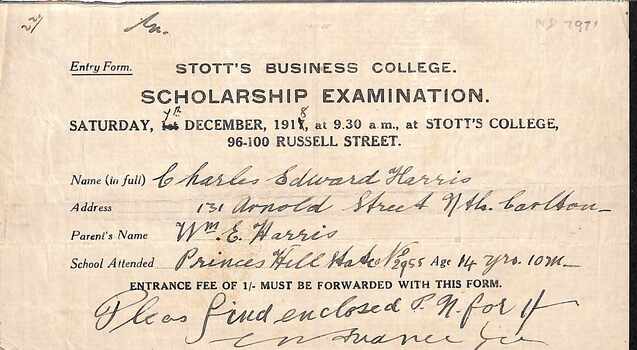 22/
Entry Form. STOTT'S BUSINESS COLLEGE.
SCHOLARSHIP EXAMINATION.
SATURDAY, 7th DECEMBER, 1918, at 9.30 a.m., at STOTT'S COLLEGE,
96-100 RUSSELL STREET.
Name (in full) Charles Edward Harris
Address 131 Arnold Street Nth. Carlton
Parent's Name Wm. E. Harris
School Attended Princes Hill State No 2955 Age 14 yrs. 10m
ENTRANCE FEE OF 1/- MUST BE FORWARDED WITH THIS FORM.
Pleas find enclosed P.N. for 1/